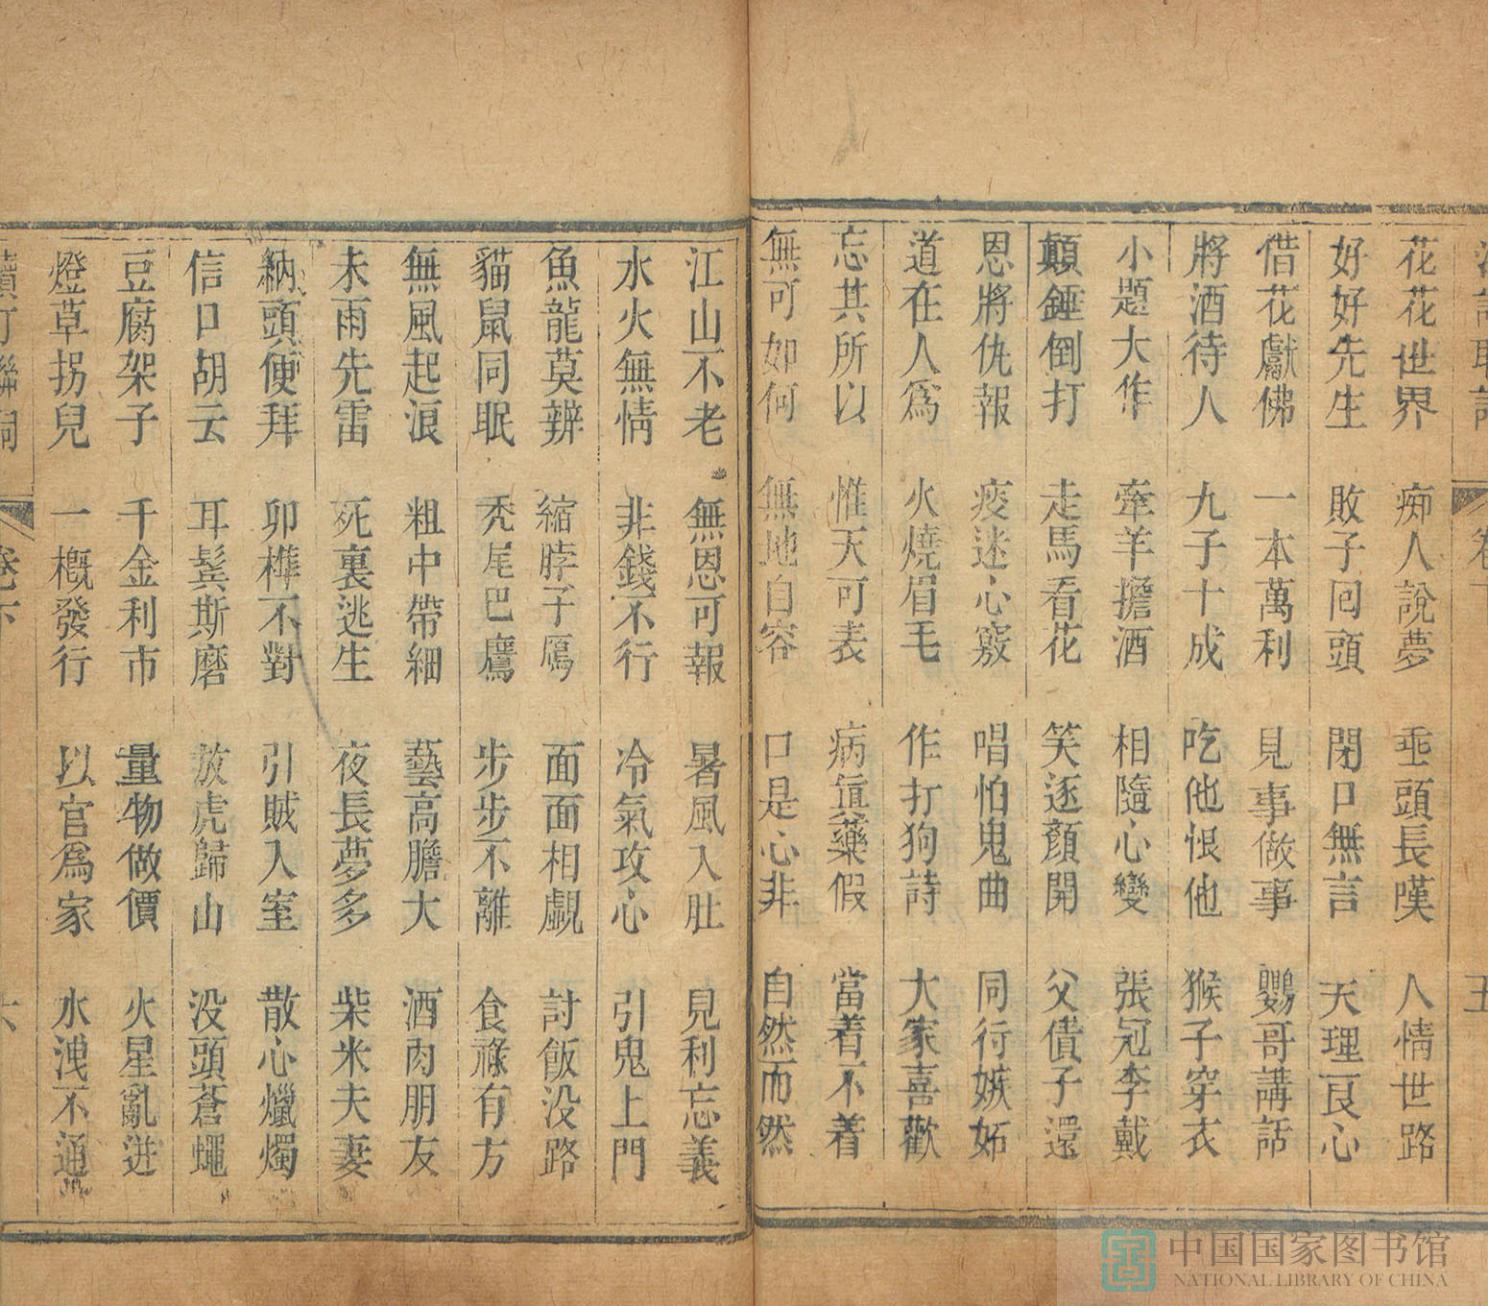 花花世界 痴人說夢 乖頭長嘆 人情世路
好好先生 敗子回頭 閉口無言 天理良心
借花獻佛 一本萬利 見事做事 鸚哥講話
將酒待人 九子十成 吃他恨他 猴子穿衣
小題大作 牽羊擔酒 相隨心變 張冠李戴
顛錘倒打 走馬看花 笑逐顔開 父債子還
恩將仇報 痰迷心竅 唱怕鬼曲 同行嫉妬
道在人爲 火燒眉毛 作打狗詩 大家喜歡
忘其所以 惟天可表 病眞藥假 當着不着
無可如何 無地自容 口是心非 自然而然
江山不老 無恩可報 暑風入肚 見利忘義
水火無情 非錢不行 冷氣攻心 引鬼上門
魚龍莫辨 縮脖子鴈 面面相覷 討飯没路
貓鼠同眠 秃尾巴鷹 步步不離 食祿有方
無風起浪 粗中帶細 藝高膽大 酒肉朋友
未雨先雷 死裏逃生 夜長夢多 柴米夫妻
納頭便拜 卯榫不對 引賊入室 散心蠟燭
信口胡云 耳鬂斯磨 放虎歸山 没頭蒼蠅
豆腐架子 千金利市 量物做價 火星亂迸
燈草拐兒 一概發行 以官爲家 水洩不通
卷下
六
中国国家图书馆
NATIONAL LIBRARY OF CHINA